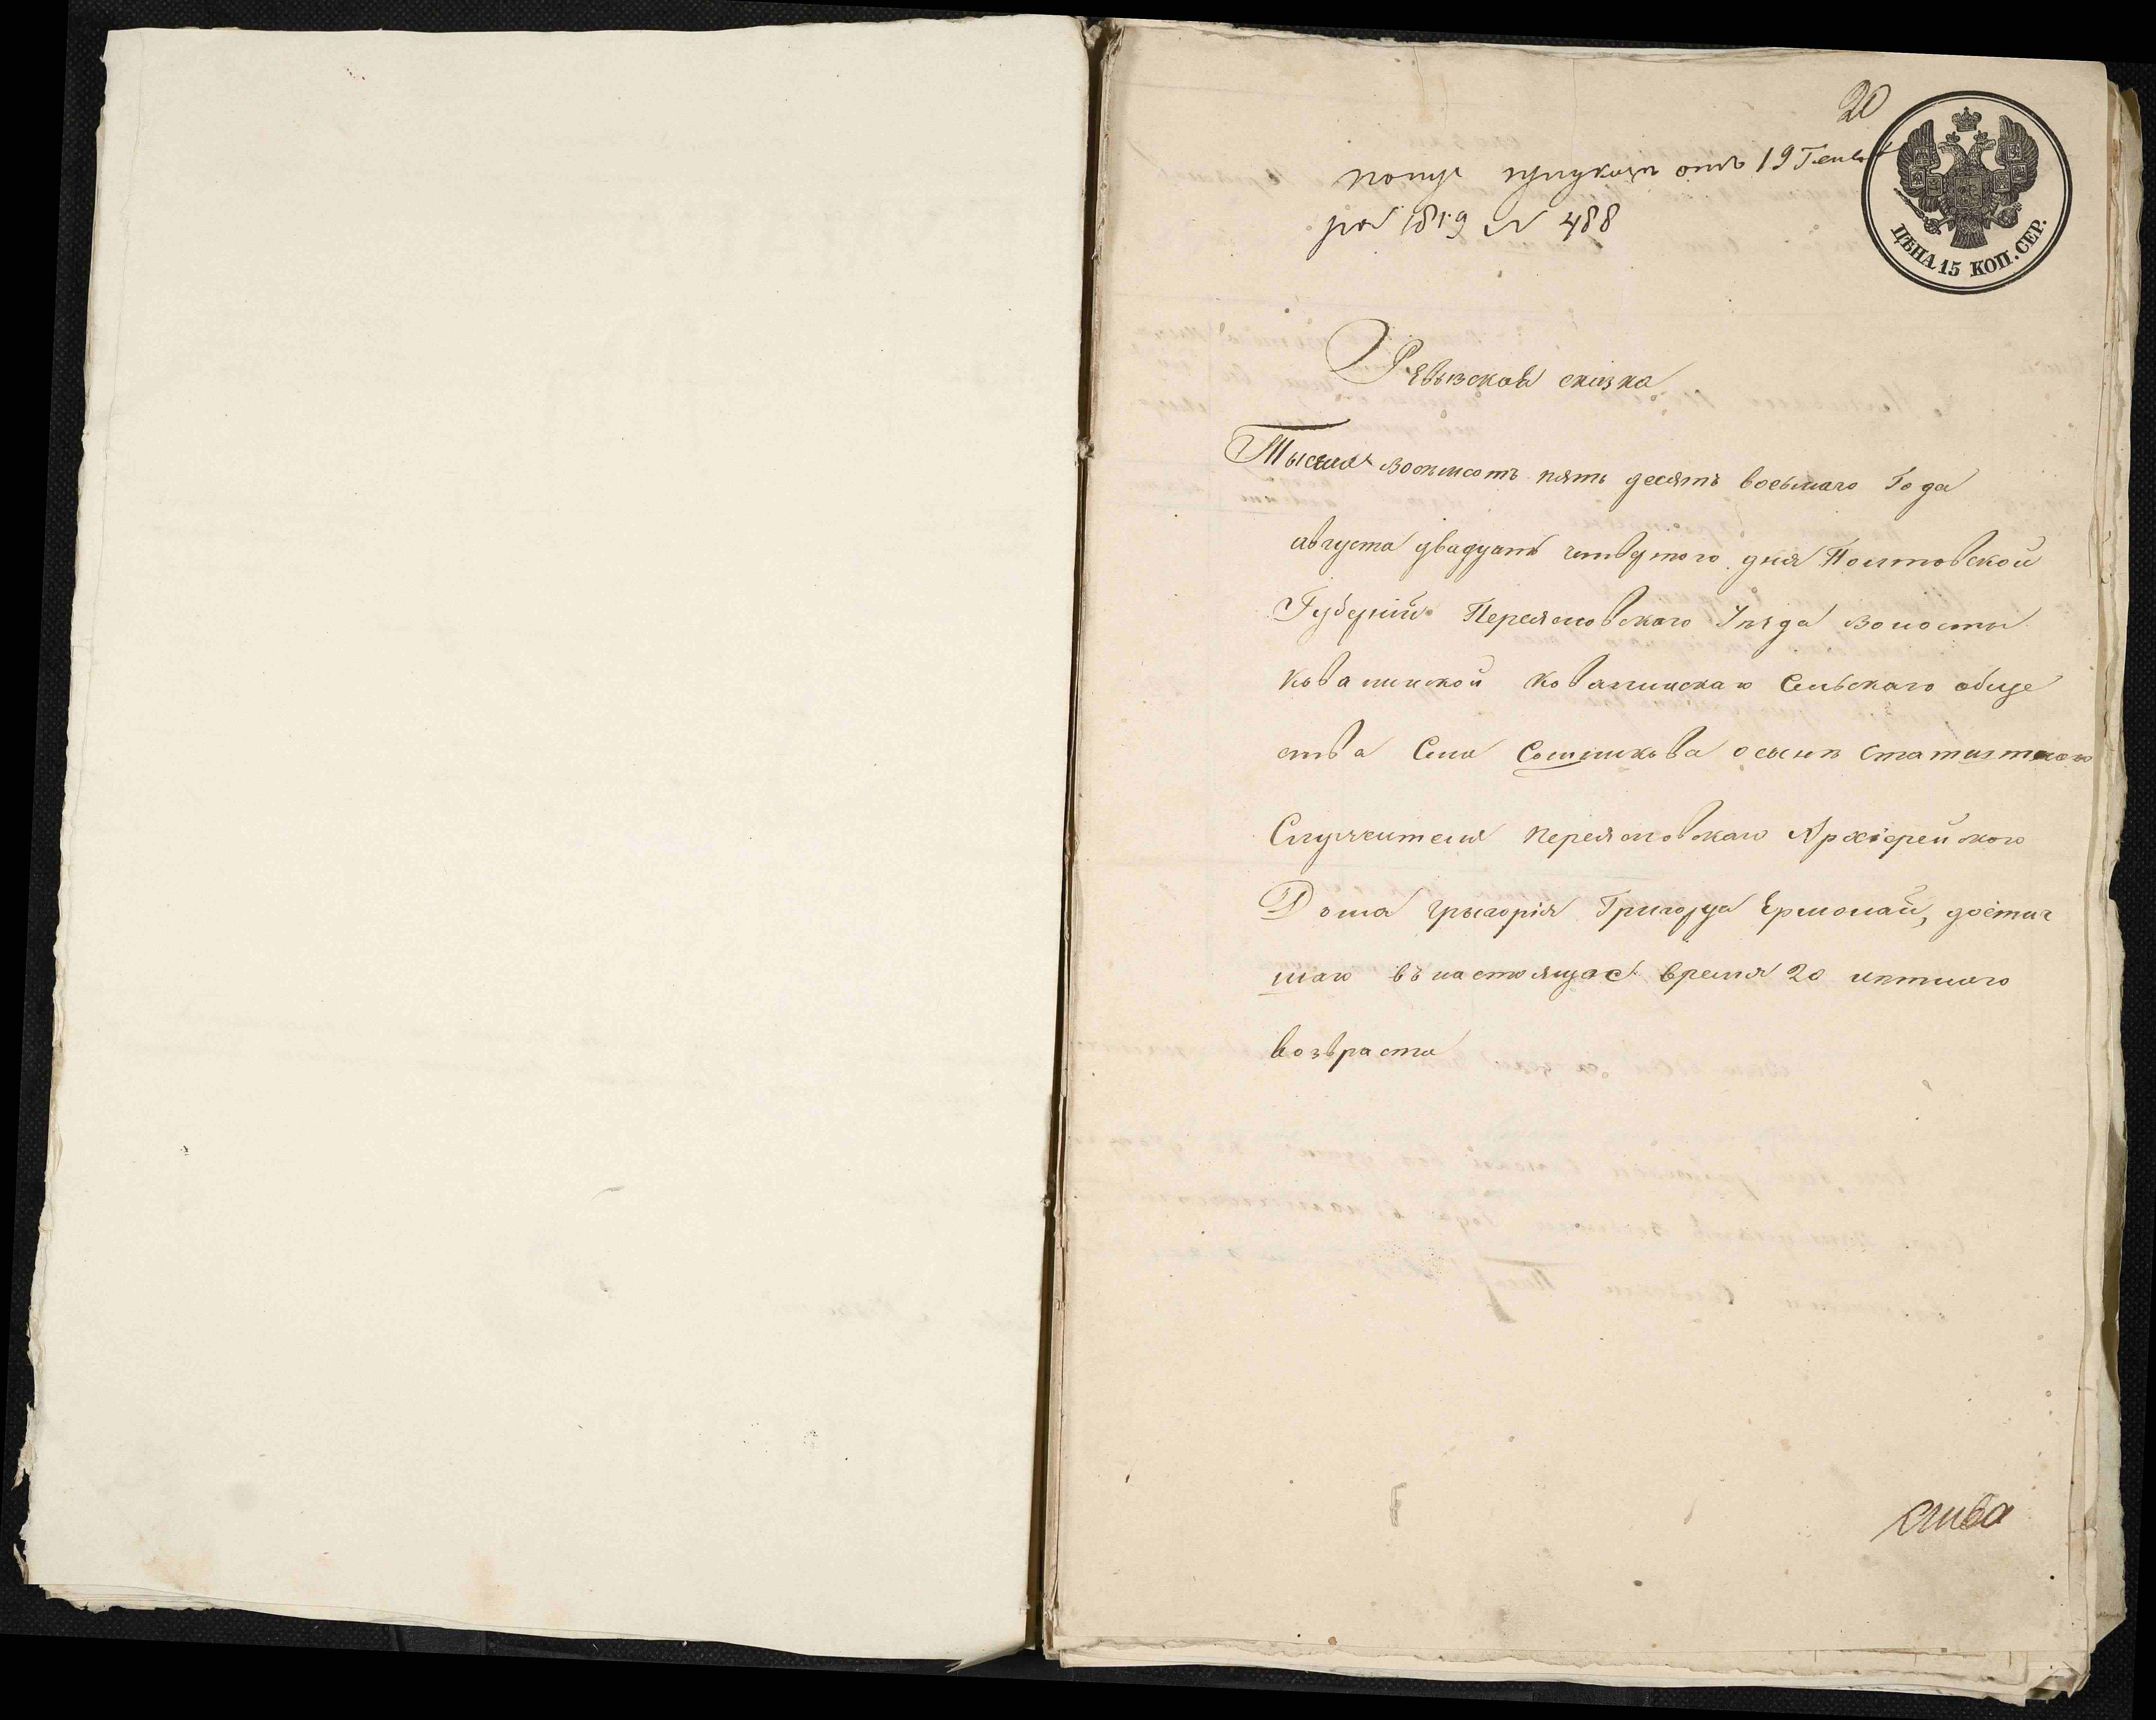 20
отъ 19 Генва
ря 1859 № 488
ЦѢНА 15 КОП. СЕР.
Ревызская сказка
Тысяча восемсотъ пять десятъ восьмаго Года
августа двадцать четвертого дня Полтовской
Губерніи Переяславскаго Уѣзда Волости
Ковалинской Ковалинскаго Сельскаго обще
ства Села Сошникова о сынѣ Статнаго
Служителя Переясловскаго Архіерейского
Дома Грыгорія Григорья Ермолай, достиг
шаго въ настоящае время 20 лѣтнаго
возъраста